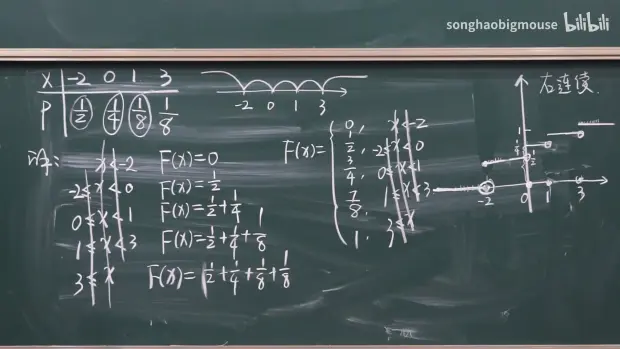 songhaobigmouse bilibili
X -2 0 1 3
P 1/2 1/4 1/8 1/8
-2 0 1 3
解:
x<-2 F(x)=0
-2≤x<0 F(x)=1/2
0≤x<1 F(x)=1/2+1/4
1≤x<3 F(x)=1/2+1/4+1/8
3≤x F(x)=1/2+1/4+1/8+1/8
F(x)={
0, x<-2
1/2, -2≤x<0
3/4, 0≤x<1
7/8, 1≤x<3
1, 3≤x
右连续.
1
1/2
-2 0 1 3